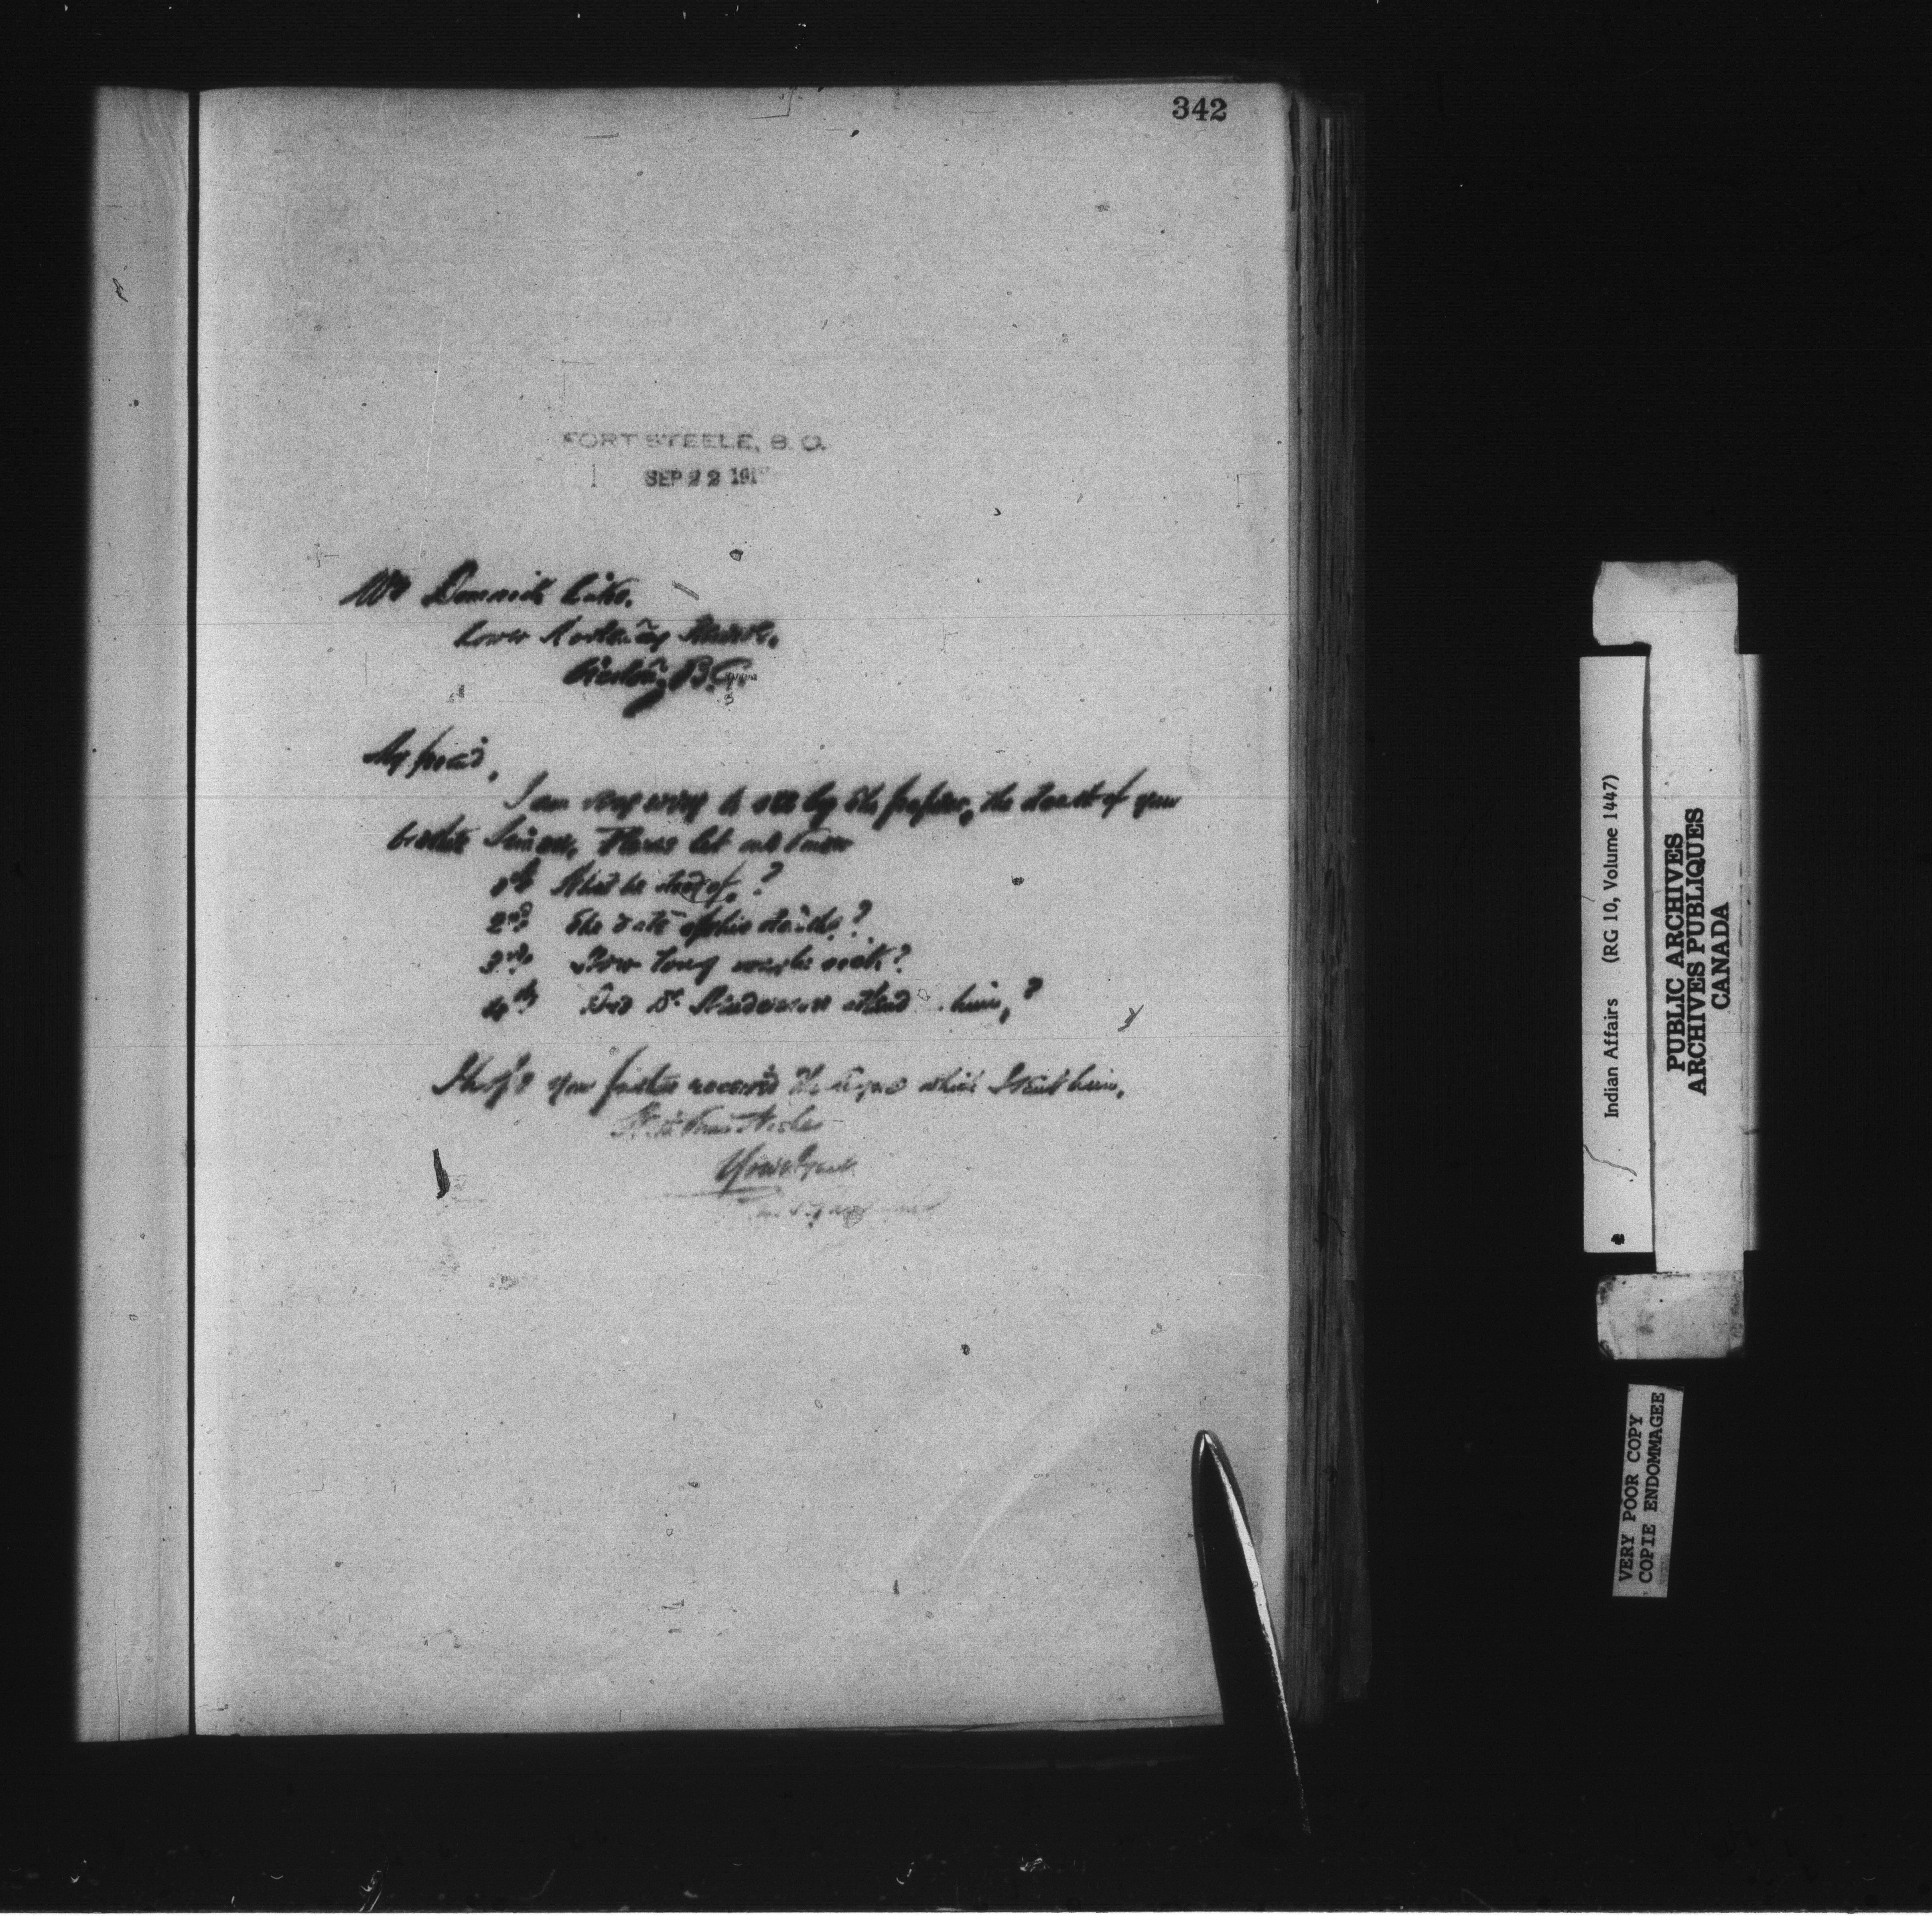 342
FORT STEELE, B. C.
SEP 22 191
Mr Dominick
Lower Kootenay
Creston, B.C.
My friend,
I am very sorry to see by the papers, the death of your
brother Simon, Please let me know
1st What he died of.?
2nd The date of his death?
3rd How long was he sick?
4th Did Dr. Henderson attend him,?
I hope your father received the which I sent him.
With Kind Wishes
Your Agent
Indian Affairs (RG 10, Volume 1447)
PUBLIC ARCHIVES
ARCHIVES PUBLIQUES
CANADA
VERY POOR COPY
COPIE ENDOMMAGEE